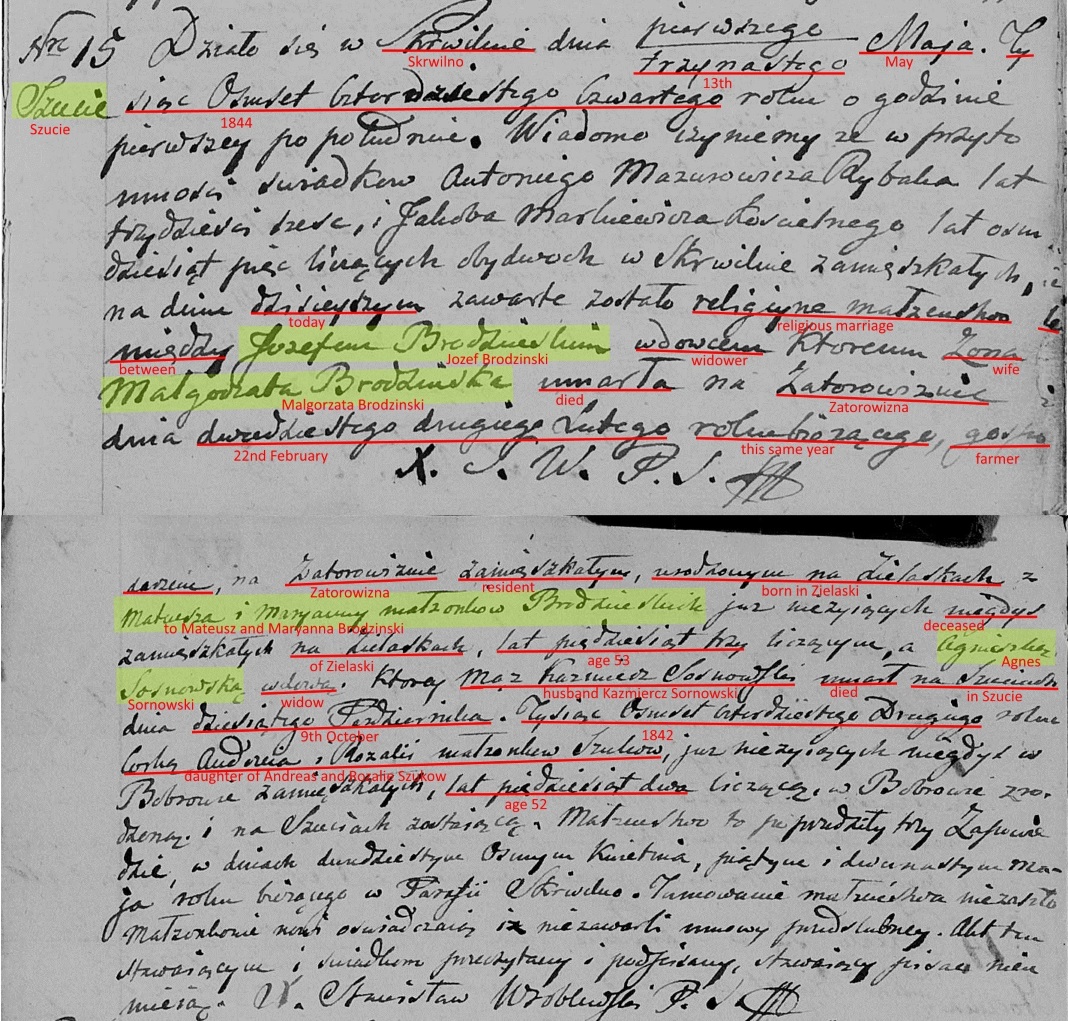 Nro 15 Działo się w Skrwilnie dnia pierwszego Maja. Ty
trzynastego
Skrwilno 13th May
Szucie siąc Osmset Czterdziestego Czwartego roku o godzinie
Szucie 1844
pierwszey po południu. Wiadomo czyniemy ze w przyto
mnosci swiadkow Antoniego Mazurowicza Rybaka lat
trzydziesci szesc, i Jakoba Markiewicza Koscielnego lat osm
dziesiąt pięc liczących obydwoch w Skrwilnie zamięszkałych,
na dniu dzisieyszym zawarte zostało religiyne małzenstwo
today religious marriage
między Jozefem Brodzinskim wdowcem ktoremu Zona
between Jozef Brodzinski widower wife
Małgorzata Brodzinska umarła na Zatorowiznie
Malgorzata Brodzinski died Zatorowizna
dnia dwudziestego drugiego Lutego roku biezącego, gospo
22nd February this same year farmer
X. S. W. P. S.
darzem, na Zatorowiznie zamięszkałym, urodzonym na Zielaskach z
Zatorowizna resident born in Zielaski
Mateusza i Maryanny małzonkow Brodzinskich juz niezyiących niegdys
to Mateusz and Maryanna Brodzinski deceased
zamięszkałych na Zielaskach, lat pięcdziesiąt trzy liczącym, a Agnieszką
of Zielaski age 53 Agnes
Sosnowską wdową. ktorey mąz Kazmierz Sosnowski umarł na Szuciach
Sornowski widow husband Kazmiercz Sornowski died in Szucie
dnia dziesiątego Pazdziernika. Tysiąc Osmset Czterdziestego Drugiego roku
9th October 1842
Corką Andrzeia i Rozalii małzonkow Szukow, juz niezyiących niegdys w
daughter of Andreas and Rozalie Szukow
Bobrowie zamięszkałych, lat pięcdziesiąt dwa liczącą, w Bobrowie zro-
age 52
dzoną. i na Szuciach zostaiącą. Małzenstwo to poprzedziły trzy Zapowie
dzie, w dniach dwudziestym Osmym Kwietnia, piątym i dwunastym Ma-
ja roku biezącego w Parafii Skrwilno. Tamowanie małzenstwa niezaszło
Małzonkowie nowi oswiadczaią iz niezawarli umowy przedslubney. Akt ten
stawaiącym i swiadkom przeczytany i podpisany, stawaiący pisac nieu
mieią. X. Stanisław Wroblewski P. S.